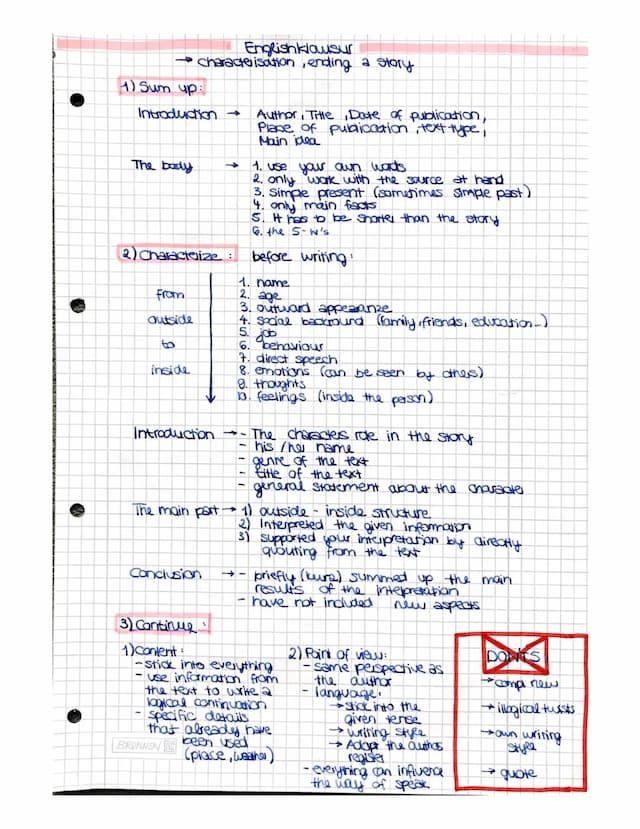 Englishklausur
→ characterisation, ending a story
1) Sum up:
Introduction → Author, Title, Date of publication,
Place of publication, text type,
Main idea
The body → 1. use your own words
2. only work with the source at hand
3. simple present (sometimes simple past)
4. only main facts
5. It has to be shorter than the story
6. the 5-W's
2) Characterize: before writing:
from outside to inside
1. name
2. age
3. outward appearance
4. social background (family, friends, education...)
5. job
6. behaviour
7. direct speech
8. emotions (can be seen by others)
9. thoughts
10. feelings (inside the person)
Introduction → - The characters role in the story
- his/her name
- genre of the text
- title of the text
- general statement about the character
The main part → 1) outside - inside structure
2) Interpreted the given information
3) supported your interpretation by directly
quouting from the text
Conclusion → - briefly (kurz) summed up the main
results of the interpretation
- have not included new aspects
3) Continue:
1) Content:
- stick into everything
- use information from
the text to write a
logical continuation
- specific details
that already have
been used
(place, weather)
BRUNNEN
2) Point of view:
- same perspective as
the author
- language:
→ stick into the
given tense
→ writing style
→ Adapt the authors
register
- everything can influence
the way of speak
DON'TS
→ comp. new
→ illogical twists
→ own writing
style
→ quote